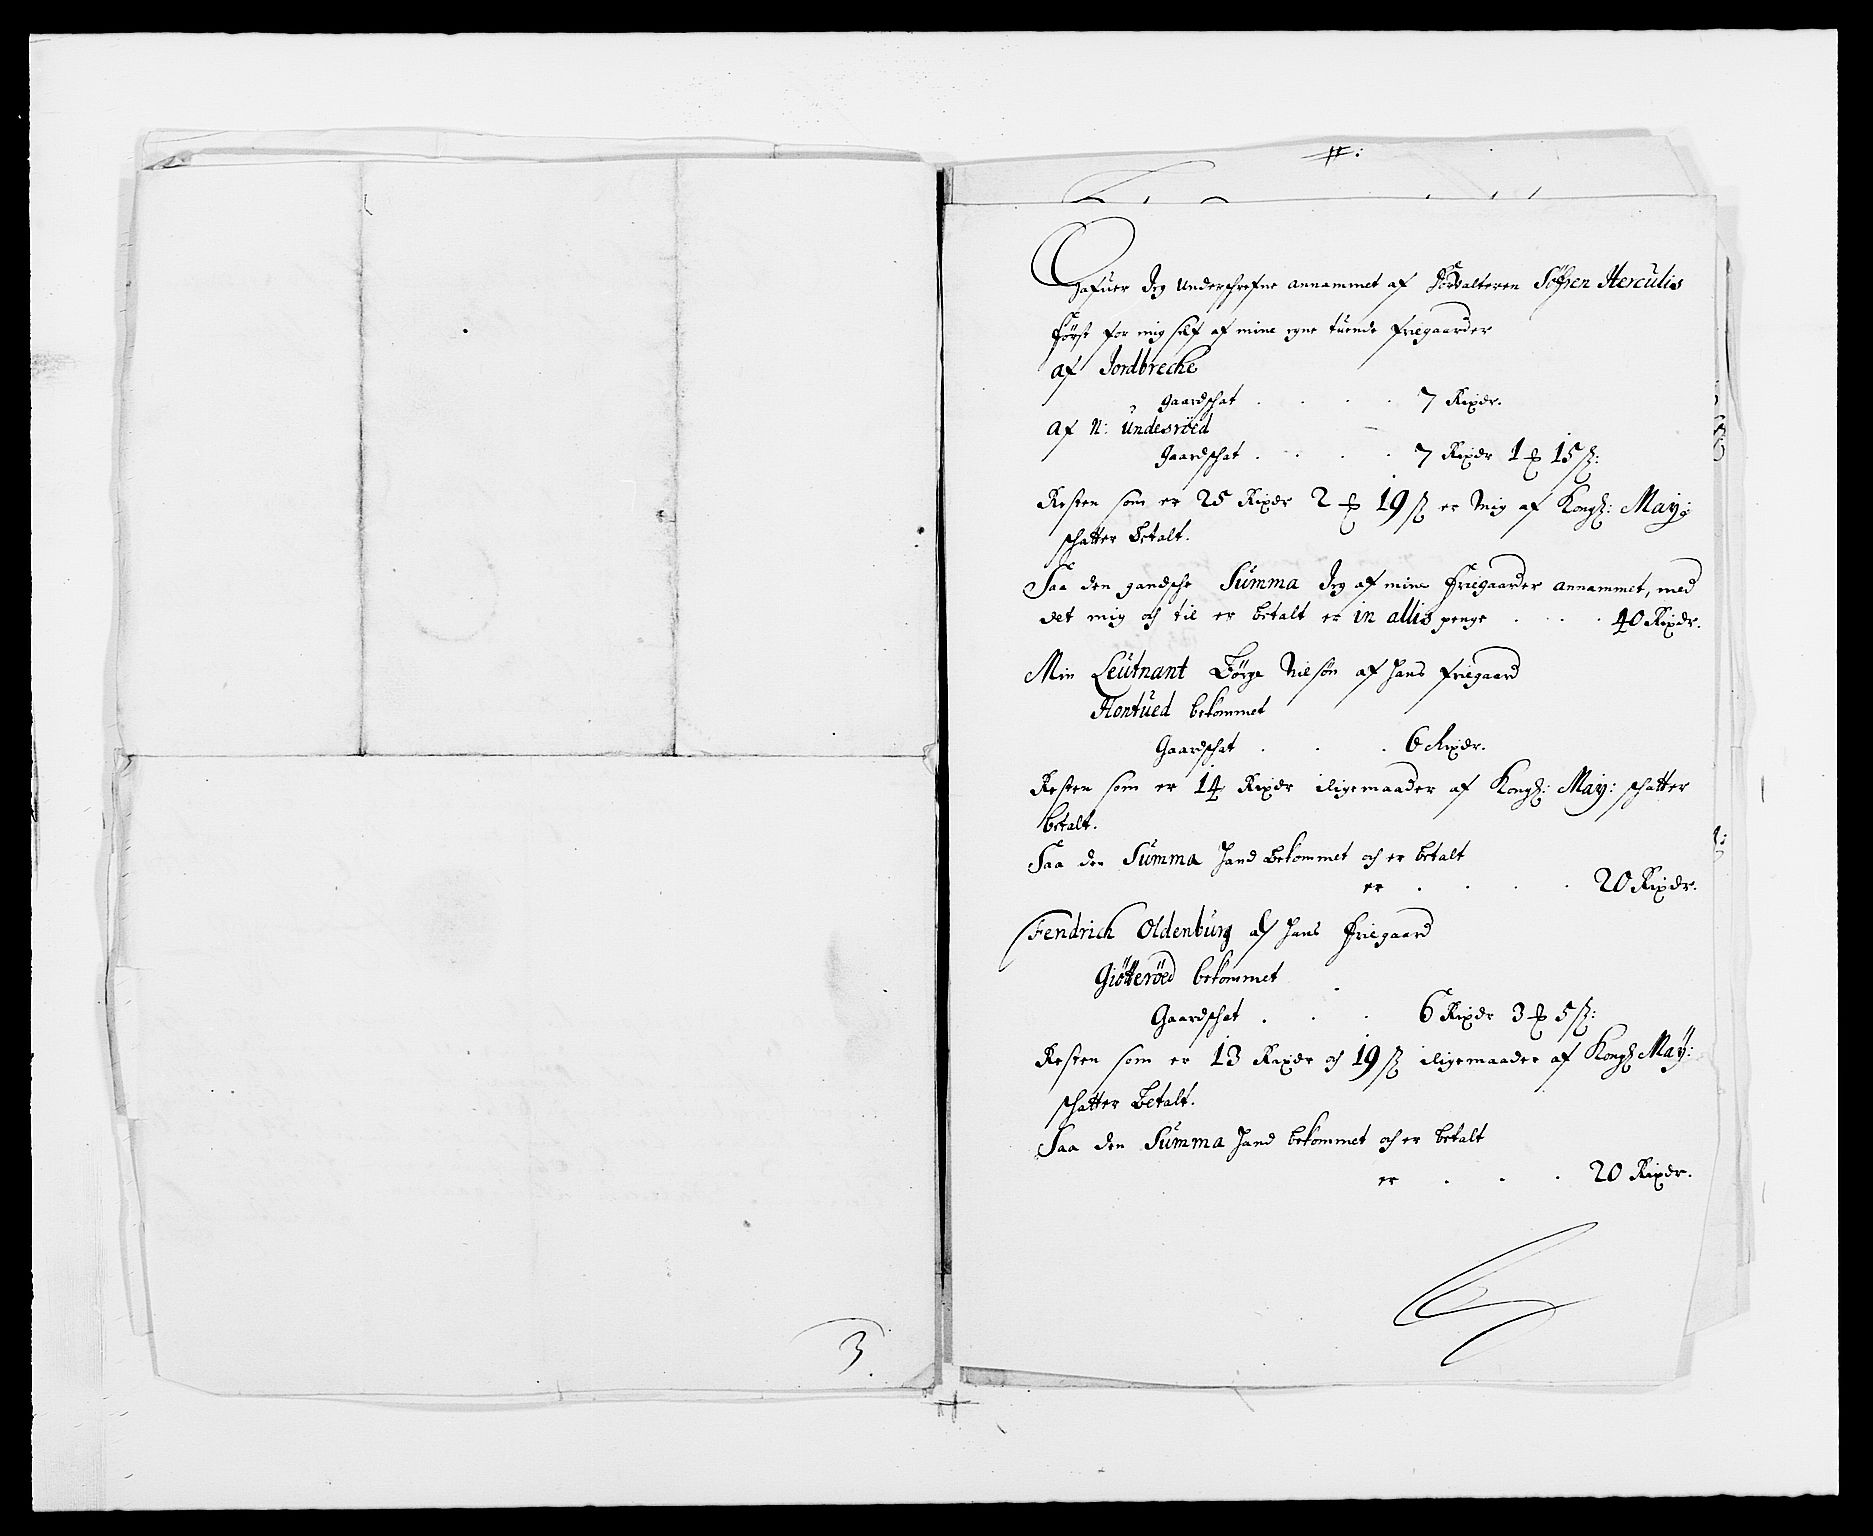 #:
Hafuer Jeg underschrefne annammet af Forvalteren Söfren Herculis
först for mig self af mine egne tuende friegaarder
af Jordbreche
gaardschat . . . . 7 Rixdr.
af N: undesröed
gaardschat . . . . 7 Rixdr 1 ℔ 15 ß:
Resten som er 25 Rixdr 2 ℔ 19 ß er mig af Kongl: May:
schatter betalt.
Saa den gandsche Summa Jeg af mine friegaarder annammet, med
det mig och til er betalt er in allis penge . . . . 40 Rixdr.
Min Leutnant Börge Nielsön af hans friegaard
Hontued bekommet
Gaardschat . . . 6 Rixdr.
Resten som er 14 Rixdr iligemaader af Kongl: May: schatter
betalt.
Saa den Summa hand bekommet och er betalt
er . . . . 20 Rixdr.
Fendrich Oldenburg af hans friegaard
Giötteröed bekommet
Gaardschat . . . 6 Rixdr 3 ℔ 5 ß:
Resten som er 13 Rixdr och 19 ß iligemaader af Kongl May:
schatter betalt.
Saa den Summa hand bekommet och er betalt
er . . . 20 Rixdr.
3.